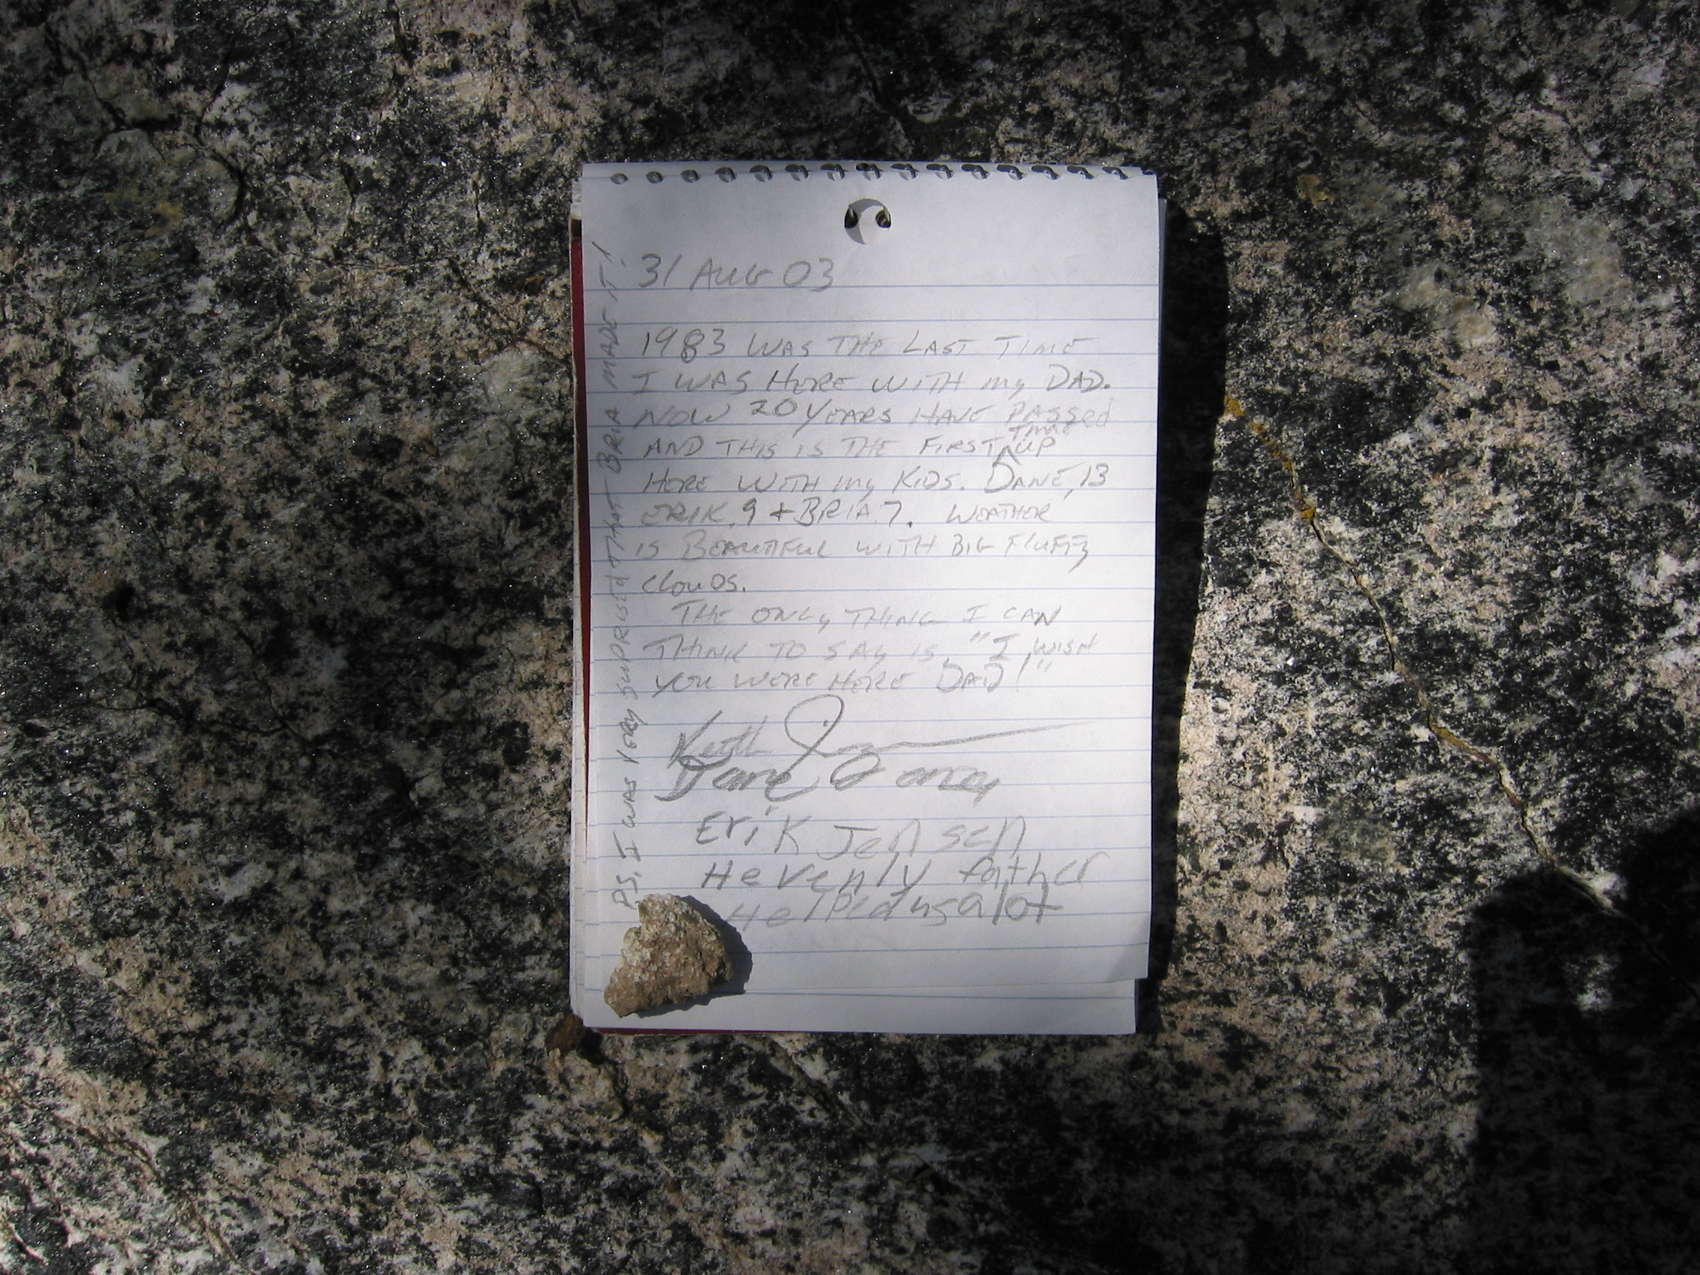 31 AUG 03
1983 WAS THE LAST TIME
I WAS HERE WITH my DAD.
NOW 20 YEARS HAVE PASSED
AND THIS IS THE FIRST TIME UP
HERE WITH my KIDS. DANE, 13
ERIK, 9 + BRIA, 7. WEATHER
IS BEAUTIFUL WITH BIG FLUFFY
CLOUDS.
THE ONLY THING I CAN
THINK TO SAY IS "I WISH
YOU WERE HERE DAD!"
Keith
Dane
Erik Jensen
Hevenly father
Helped us alot
PS, I WAS VERY SUPRISED THAT BRIA MADE IT!